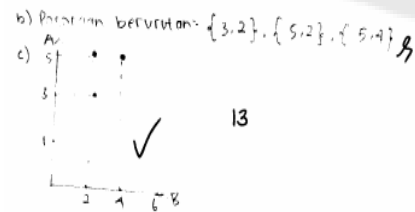 b) Pasangan berurutan = {3,2}, {5,2}, {5,4}
A
c) 5
3
13
1
2 4 6 B